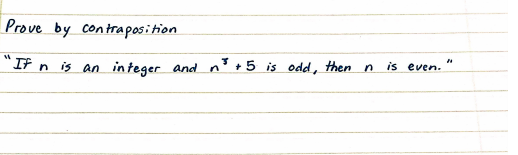 Prove by contraposition
"If n is an integer and n³ + 5 is odd, then n is even."